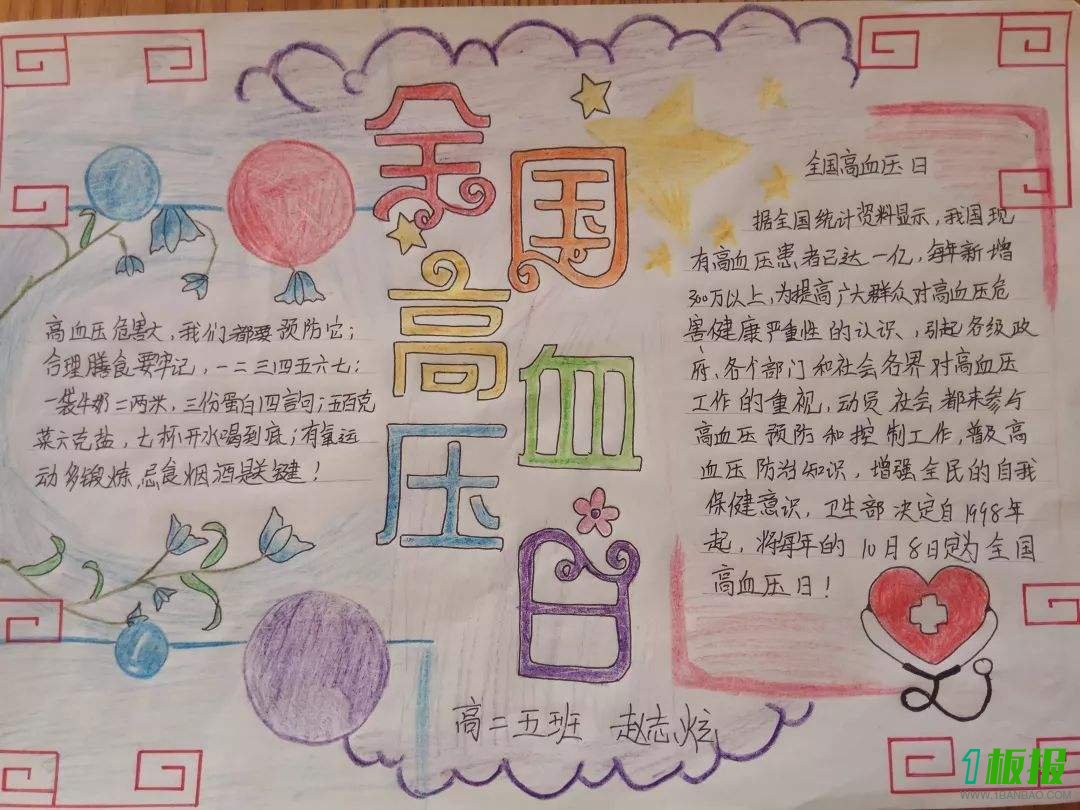 全国高血压日
高血压危害大，我们都要预防它；
合理膳食要牢记，一二三四五六七；
一袋牛奶二两米，三份蛋白四言句；五百克
菜六克盐，七杯开水喝到底；有氧运
动多锻炼，忌食烟酒是关键！
全国高血压日
据全国统计资料显示，我国现
有高血压患者已达一亿，每年新增
300万以上，为提高广大群众对高血压危
害健康严重性的认识、引起各级政
府、各个部门和社会各界对高血压
工作的重视，动员社会都来参与
高血压预防和控制工作，普及高
血压防治知识，增强全民的自我
保健意识，卫生部决定自1998年
起，将每年的10月8日定为全国
高血压日！
高二五班 赵志炫
1板报
WWW.1BANBAO.COM